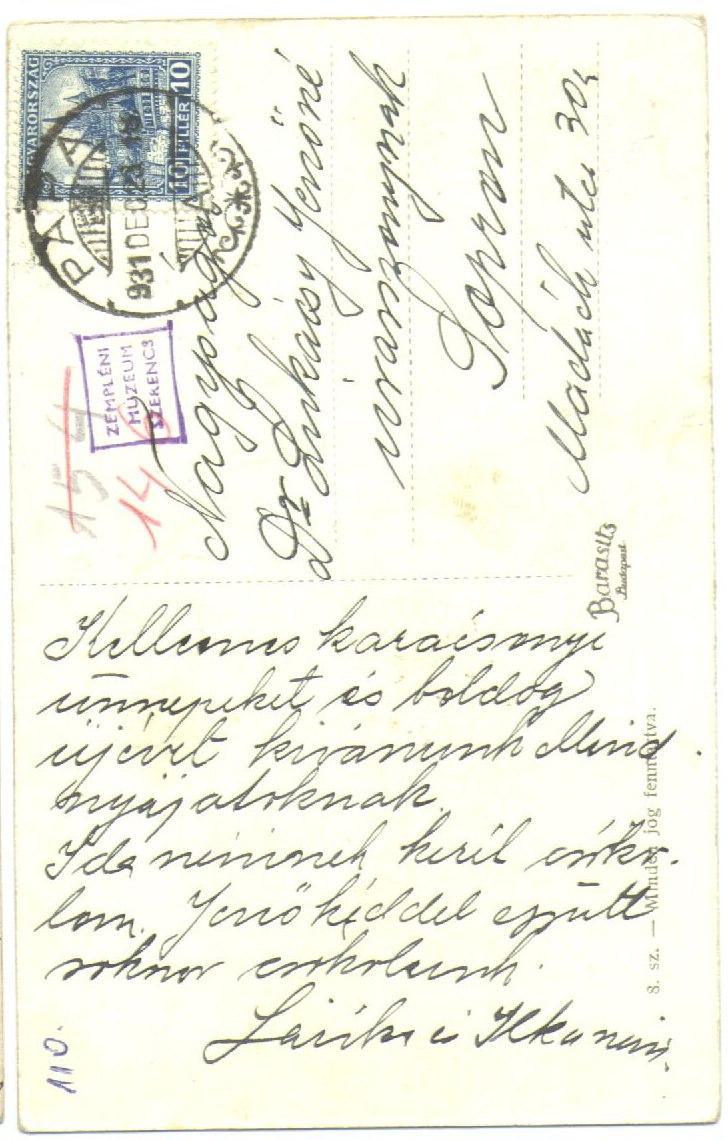 MAGYARORSZÁG
10 FILLÉR 10
PÁPA
931 DEC 23
ZEMPLÉNI
MUZEUM
SZERENCS
154
14
Nagyságos
Dr Lukácsy Jenőné
urasszonynak
Sopron
Madách utca 30
Barasits
Budapest.
Kellemes karácsonyi
ünnepeket és boldog
újévet kivánunk Mind
nyájatoknak.
Ida néninek kezét csóko-
lom. Jenőkéddel együtt
sokszor csókolunk.
Laci és Ilka néni
8. sz. — Minden jog fenntartva.
110.